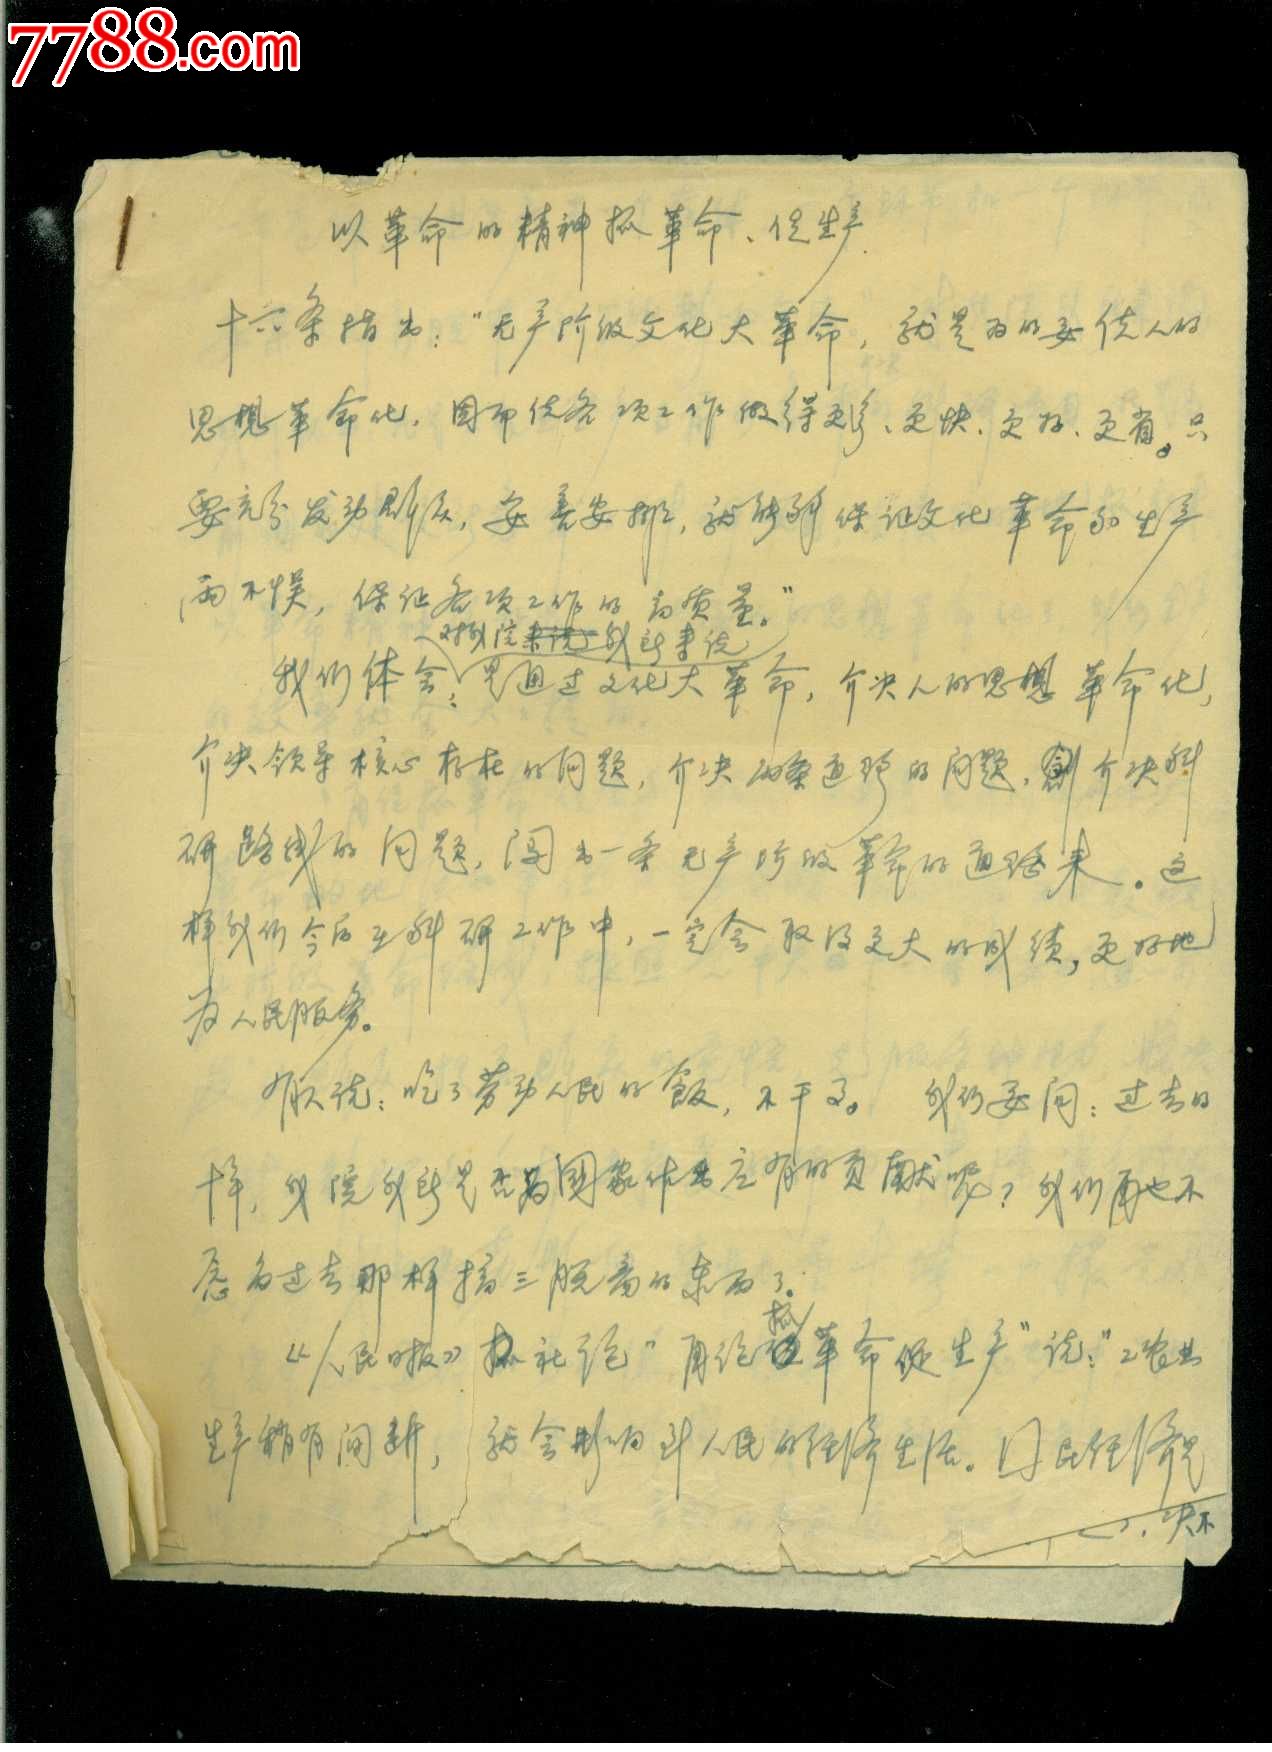 7788.com
以革命的精神抓革命、促生产
十六条指出："无产阶级文化大革命，就是为的要使人的
思想革命化，因而使各项工作做得更多、更快、更好、更省。只
要充分发动群众，妥善安排，就能够保证文化革命和生产
两不悮，保证各项工作的高质量。"
对我院来说我所来说
我们体会：是通过文化大革命，介决人的思想革命化，
介决领导核心存在的问题，介决两条道路的问题，介决科
研路线的问题，闯出一条无产阶级革命的道路来。这
样我们今后在科研工作中，一定会取得更大的成绩，更好地
为人民服务。
有人说：吃了劳动人民的飯，不干了。我们要问：过去的
十年，我院我所是否为国家作出应有的贡献呢？我们再也不
愿为过去那样搞三脱离的东西了。
《人民日报》社论"再论抓革命促生产"说："工农业
生产稍有间断，就会影响到人民的经济生活。国民经济是
决不